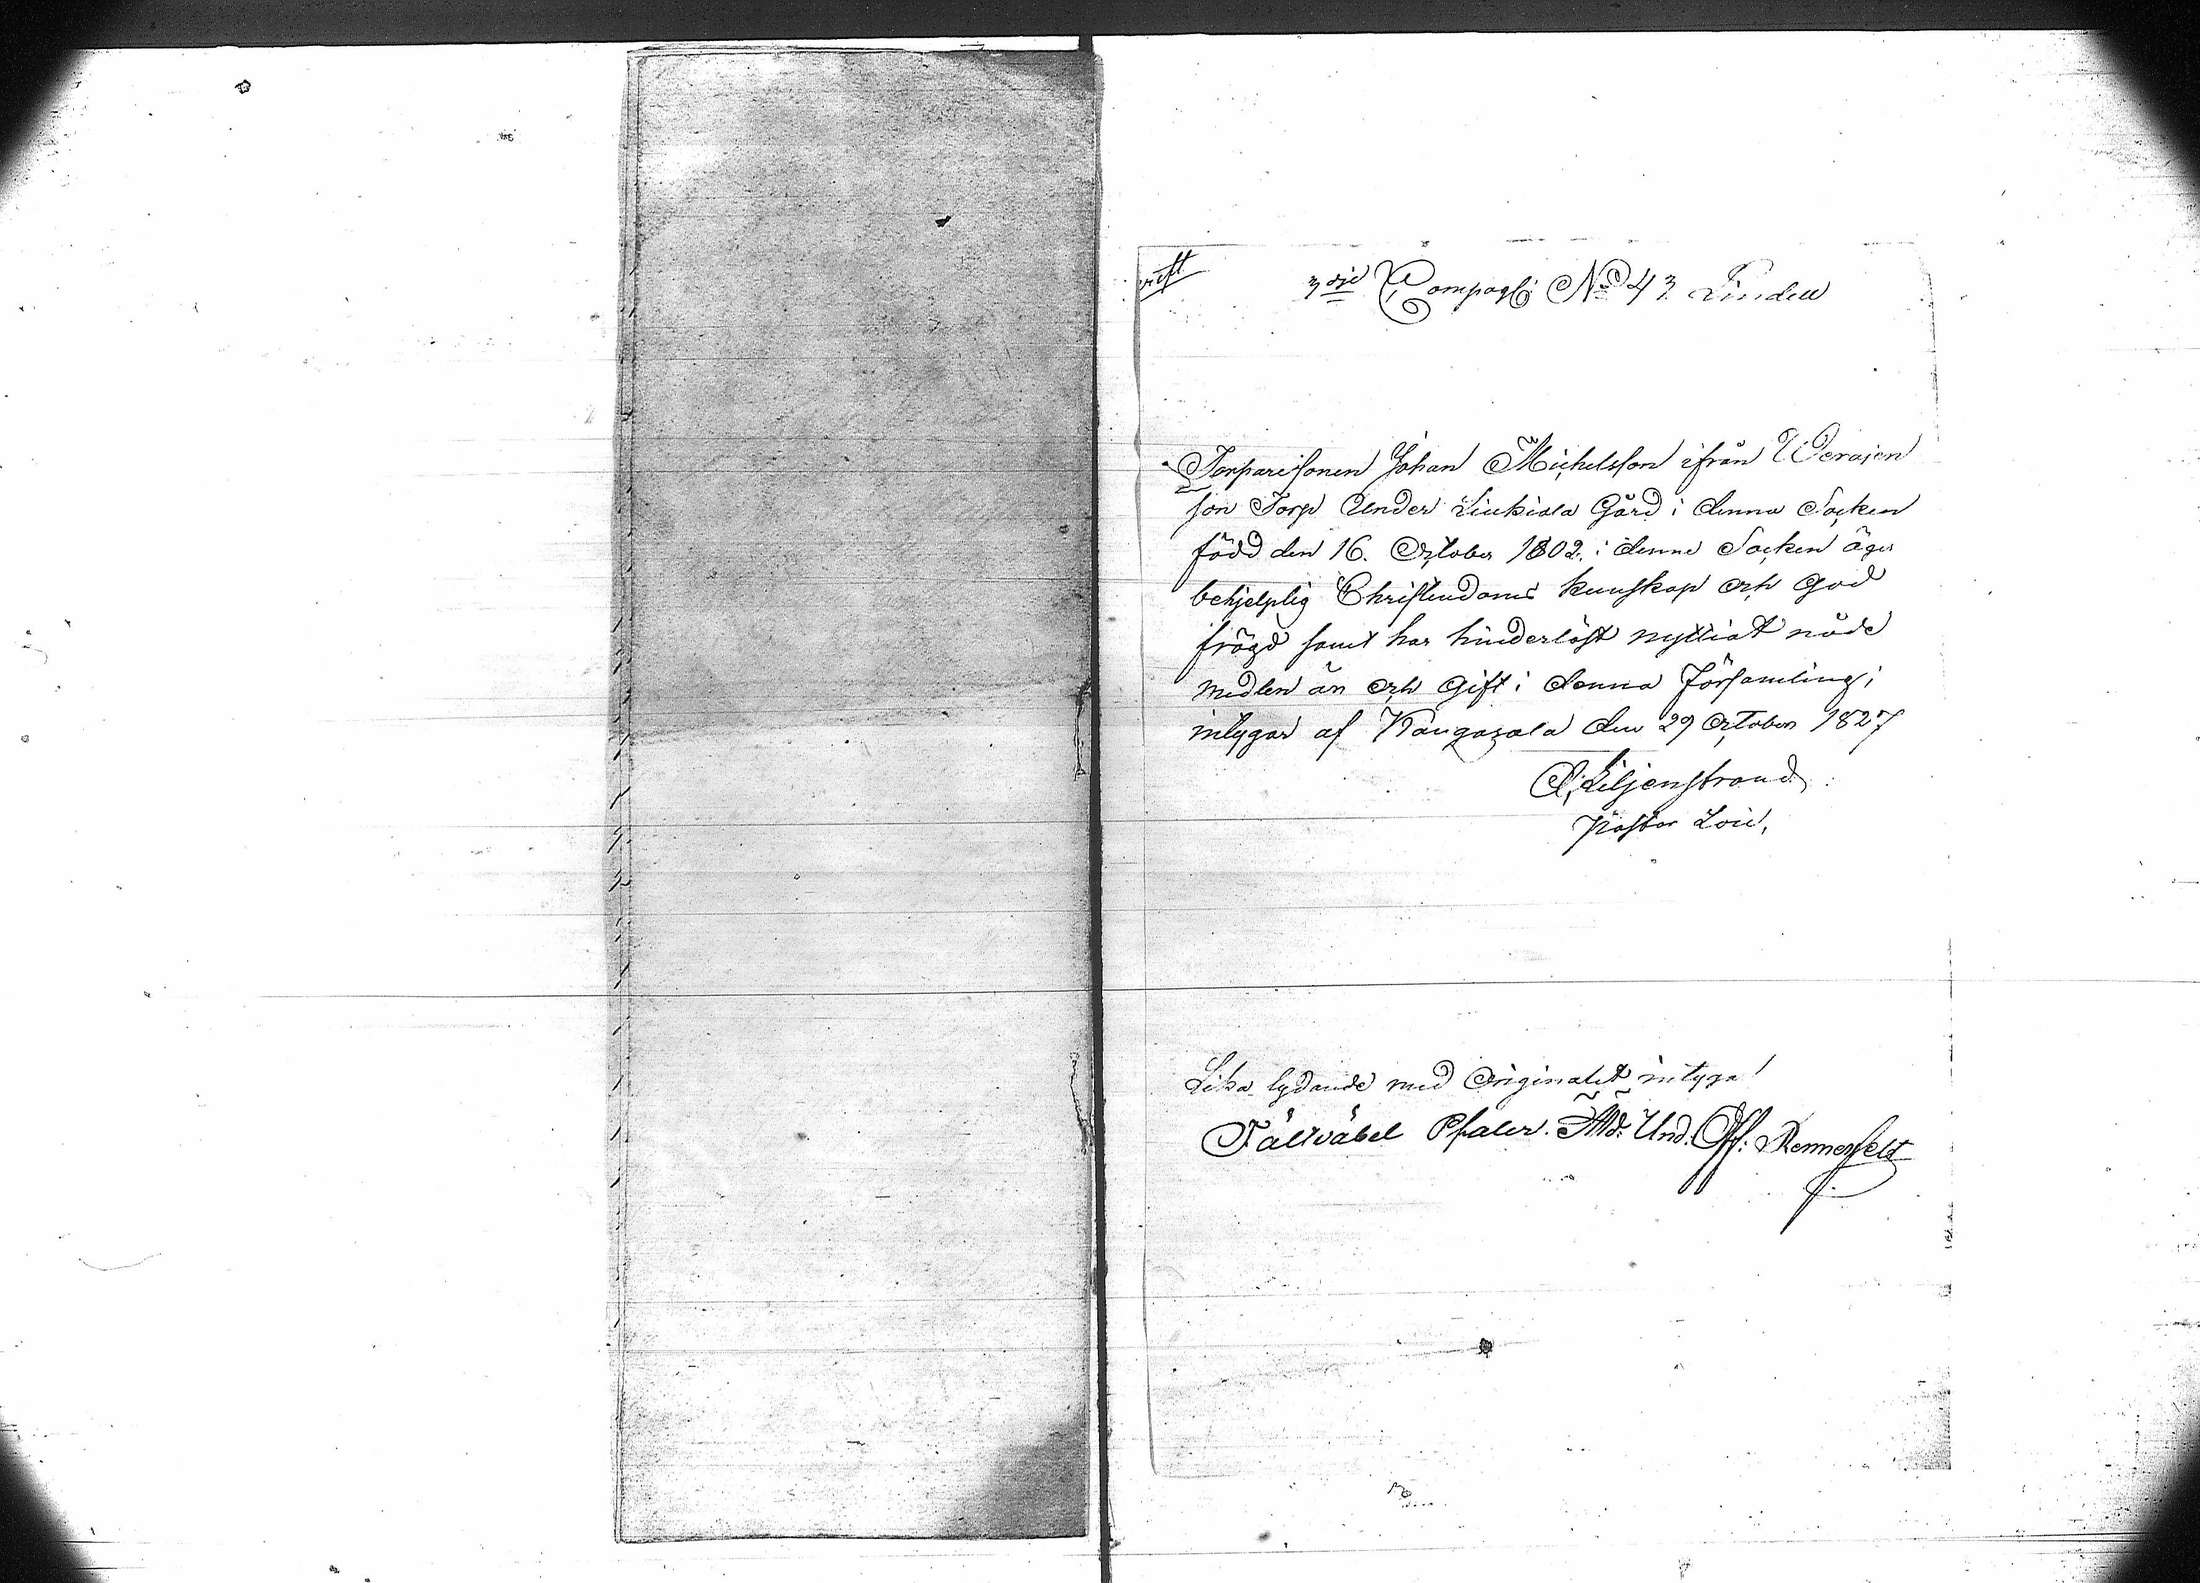 3dje Compagi: No 43. Lindell
Torparesonen Johan Michelsson ifrån Werajen
son Torp Under Liukiala Gård i denna Socken
född den 16. October 1802. i denne Socken äger
behjelplig Christendoms kunskap och god
frägd samt har hinderlöst nyttiat nåde
medlen än och gift i denna Församling;
intygar af Kangasala den 29 October 1827
Liljenstrand
Pastor Loci,
Lika lydande med Originalet intyga
Fältväbel Pfaler. Und. Off: Rennerfelt